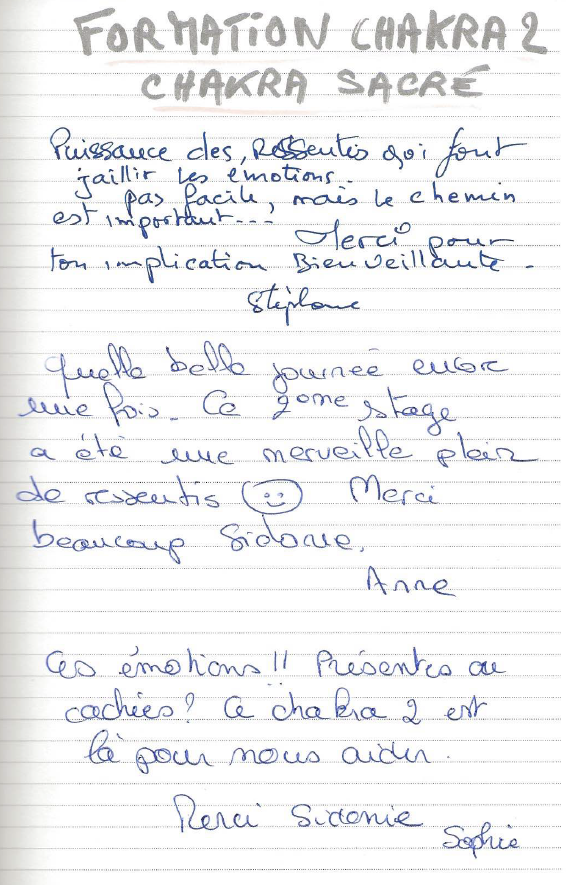 FORMATION CHAKRA 2
CHAKRA SACRÉ
Puissance des, Ressentis qui font
jaillir les émotions.
pas facile, mais le chemin
est important...
Merci pour
ton implication Bienveillante.
Stéphane
Quelle belle journée encore
une fois. Ce 2ème stage
a été une merveille plein
de ressentis ☺ Merci
beaucoup Sidonie,
Anne
Ces émotions !! Présentes ou
cachées ? Ce chakra 2 est
là pour nous aider.
Merci Sidonie
Sophie